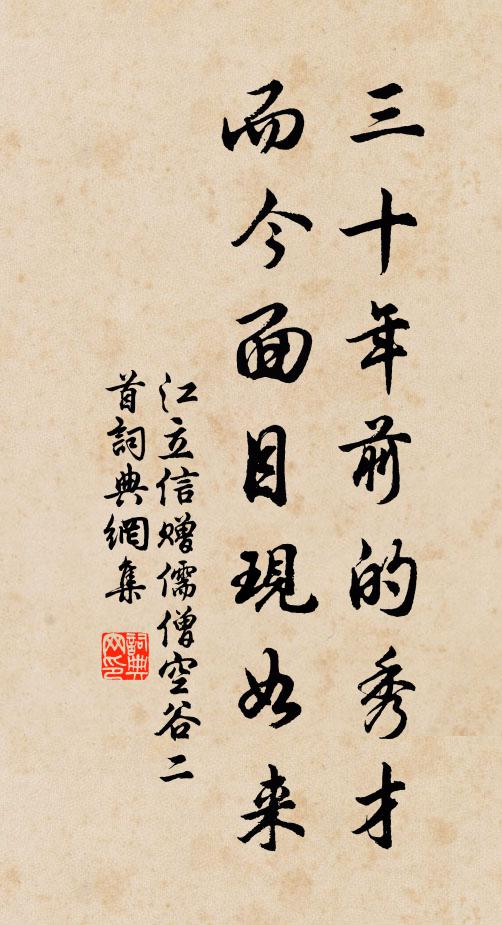 三十年前的秀才
而今面目現如来
江立信赠儒僧空谷二
首詞典網集
詞典网印